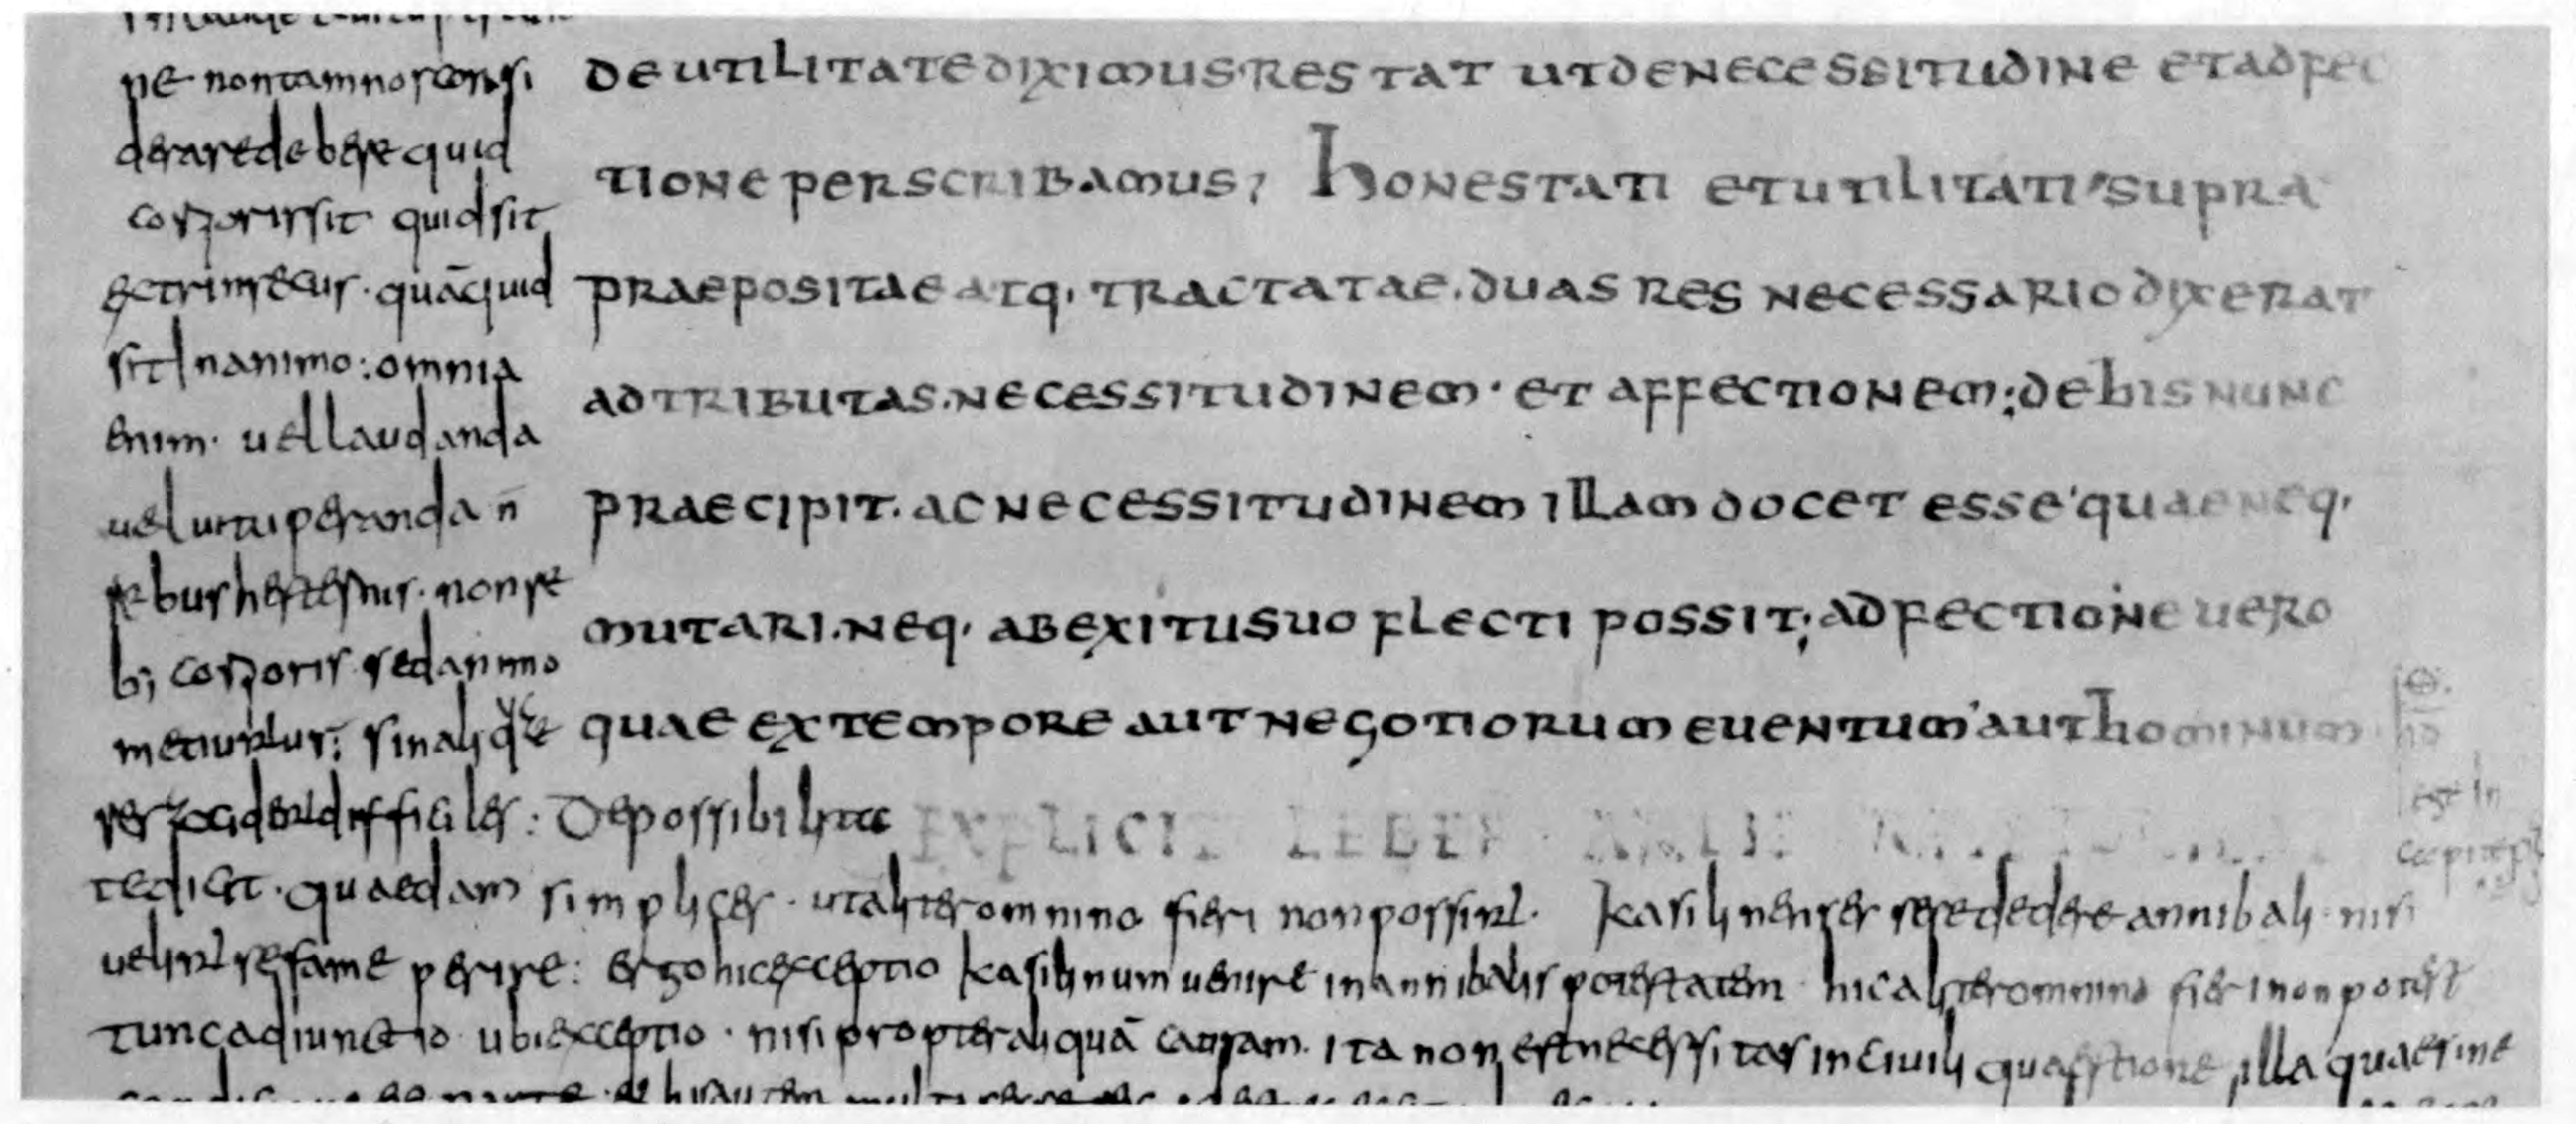 DE UTILITATE DIXIMUS RESTAT UT DE NECESSITUDINE ET ADFEC
TIONE PERSCRIBAMUS; hONESTATI ET UTILITATI SUPRA
PRAEPOSITAE ATQ· TRACTATAE. DUAS RES NECESSARIO DIXERAT
ADTRIBUTAS. NECESSITUDINEM · ET AFFECTIONEM; DE hIS NUNC
PRAECIPIT. AC NECESSITUDINEM ILLAM DOCET ESSE QUAE NEQ·
MUTARI. NEQ· AB EXITU SUO FLECTI POSSIT; ADFECTIONE UERO
QUAE EX TEMPORE AUT NEGOTIORUM EUENTUM AUT hOMINUM
EXPLICIT LIBER
ne non tam nos consi
derare debere quid
corporis sit quid sit
extrinsecus · quā quid
sit In animo : omnia
enim · uel laudanda
uel uituperanda n̄
rebus hesternis · non re
b; corporis sed animo
metiuntur; sin aliq̄
difficiles : De possibilita
te dicit · quaedam simplices · ut aliter omnino fieri non possint · Kasilinenses sese dedere annibali · nisi
uelint se fame perire : ergo hic exceptio Kasilinum uenire in annibalis potestatem hic aliter omnino fieri non potest
tunc adiunctio ubi exceptio · nisi propter aliquā causam · ita non est necessitas in ciuili quaestione illa quae sine
est In